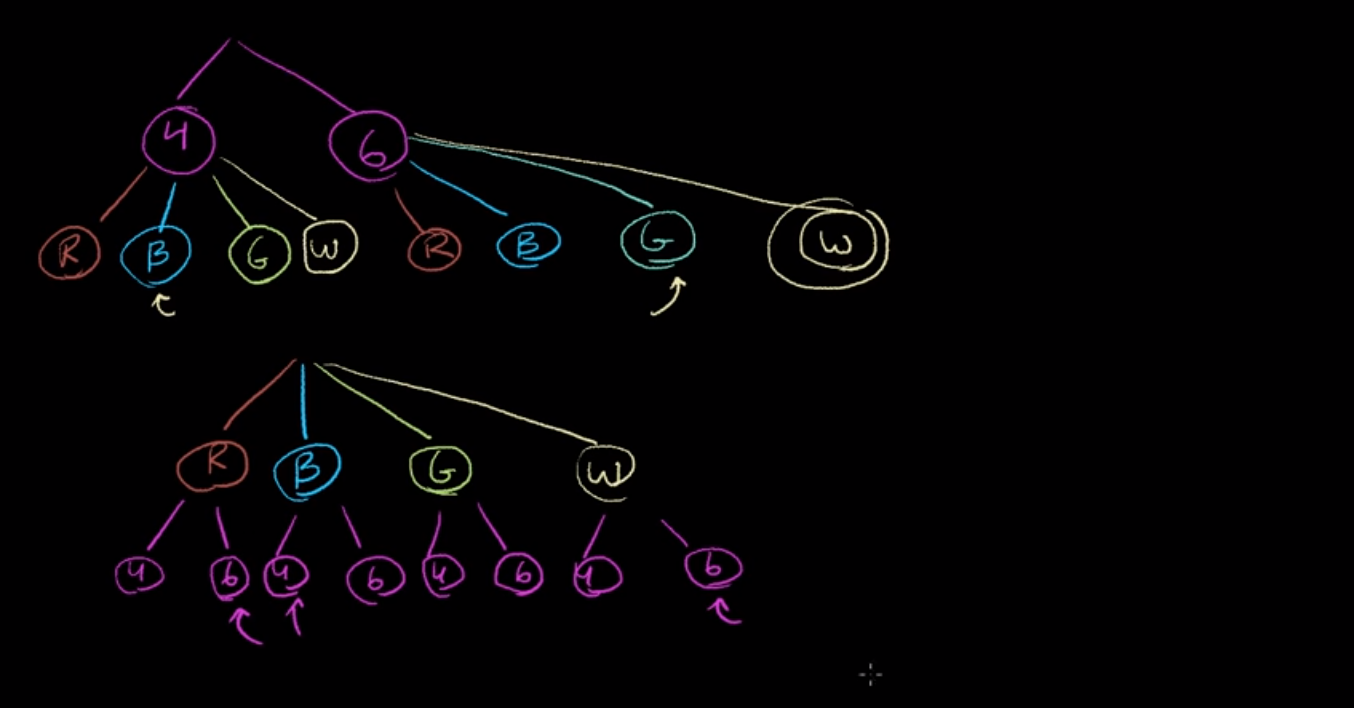 4 6
R B G W R B G W
R B G W
4 6 4 6 4 6 4 6